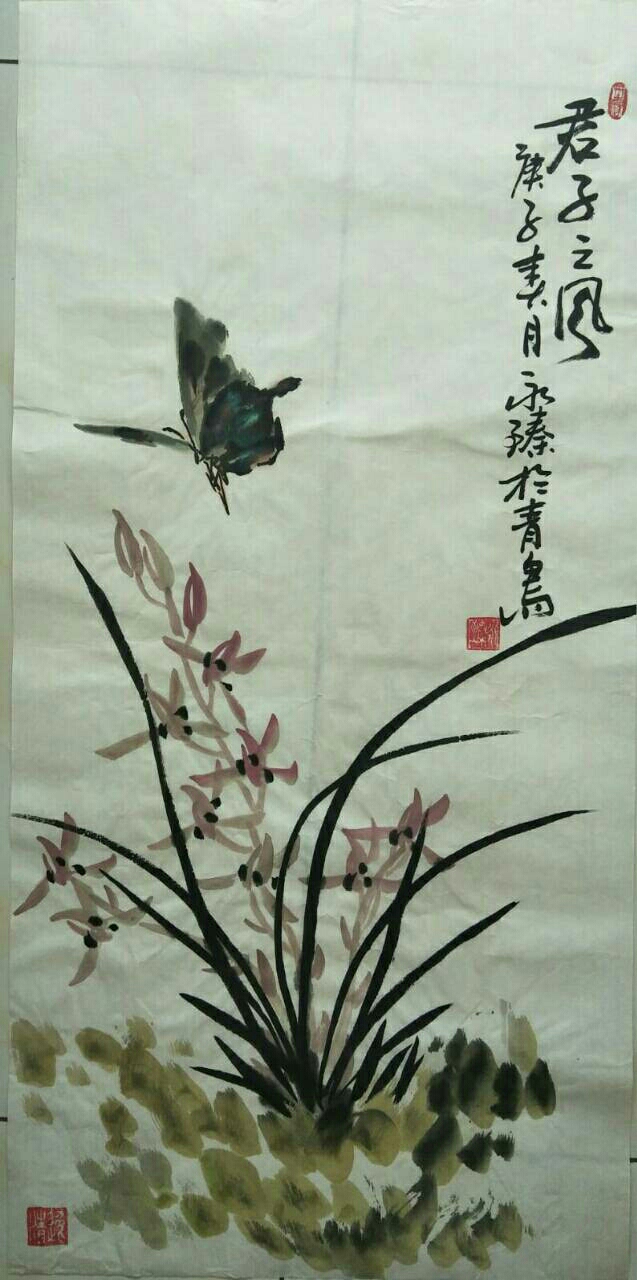 君子之风
庚子春月永臻於青島